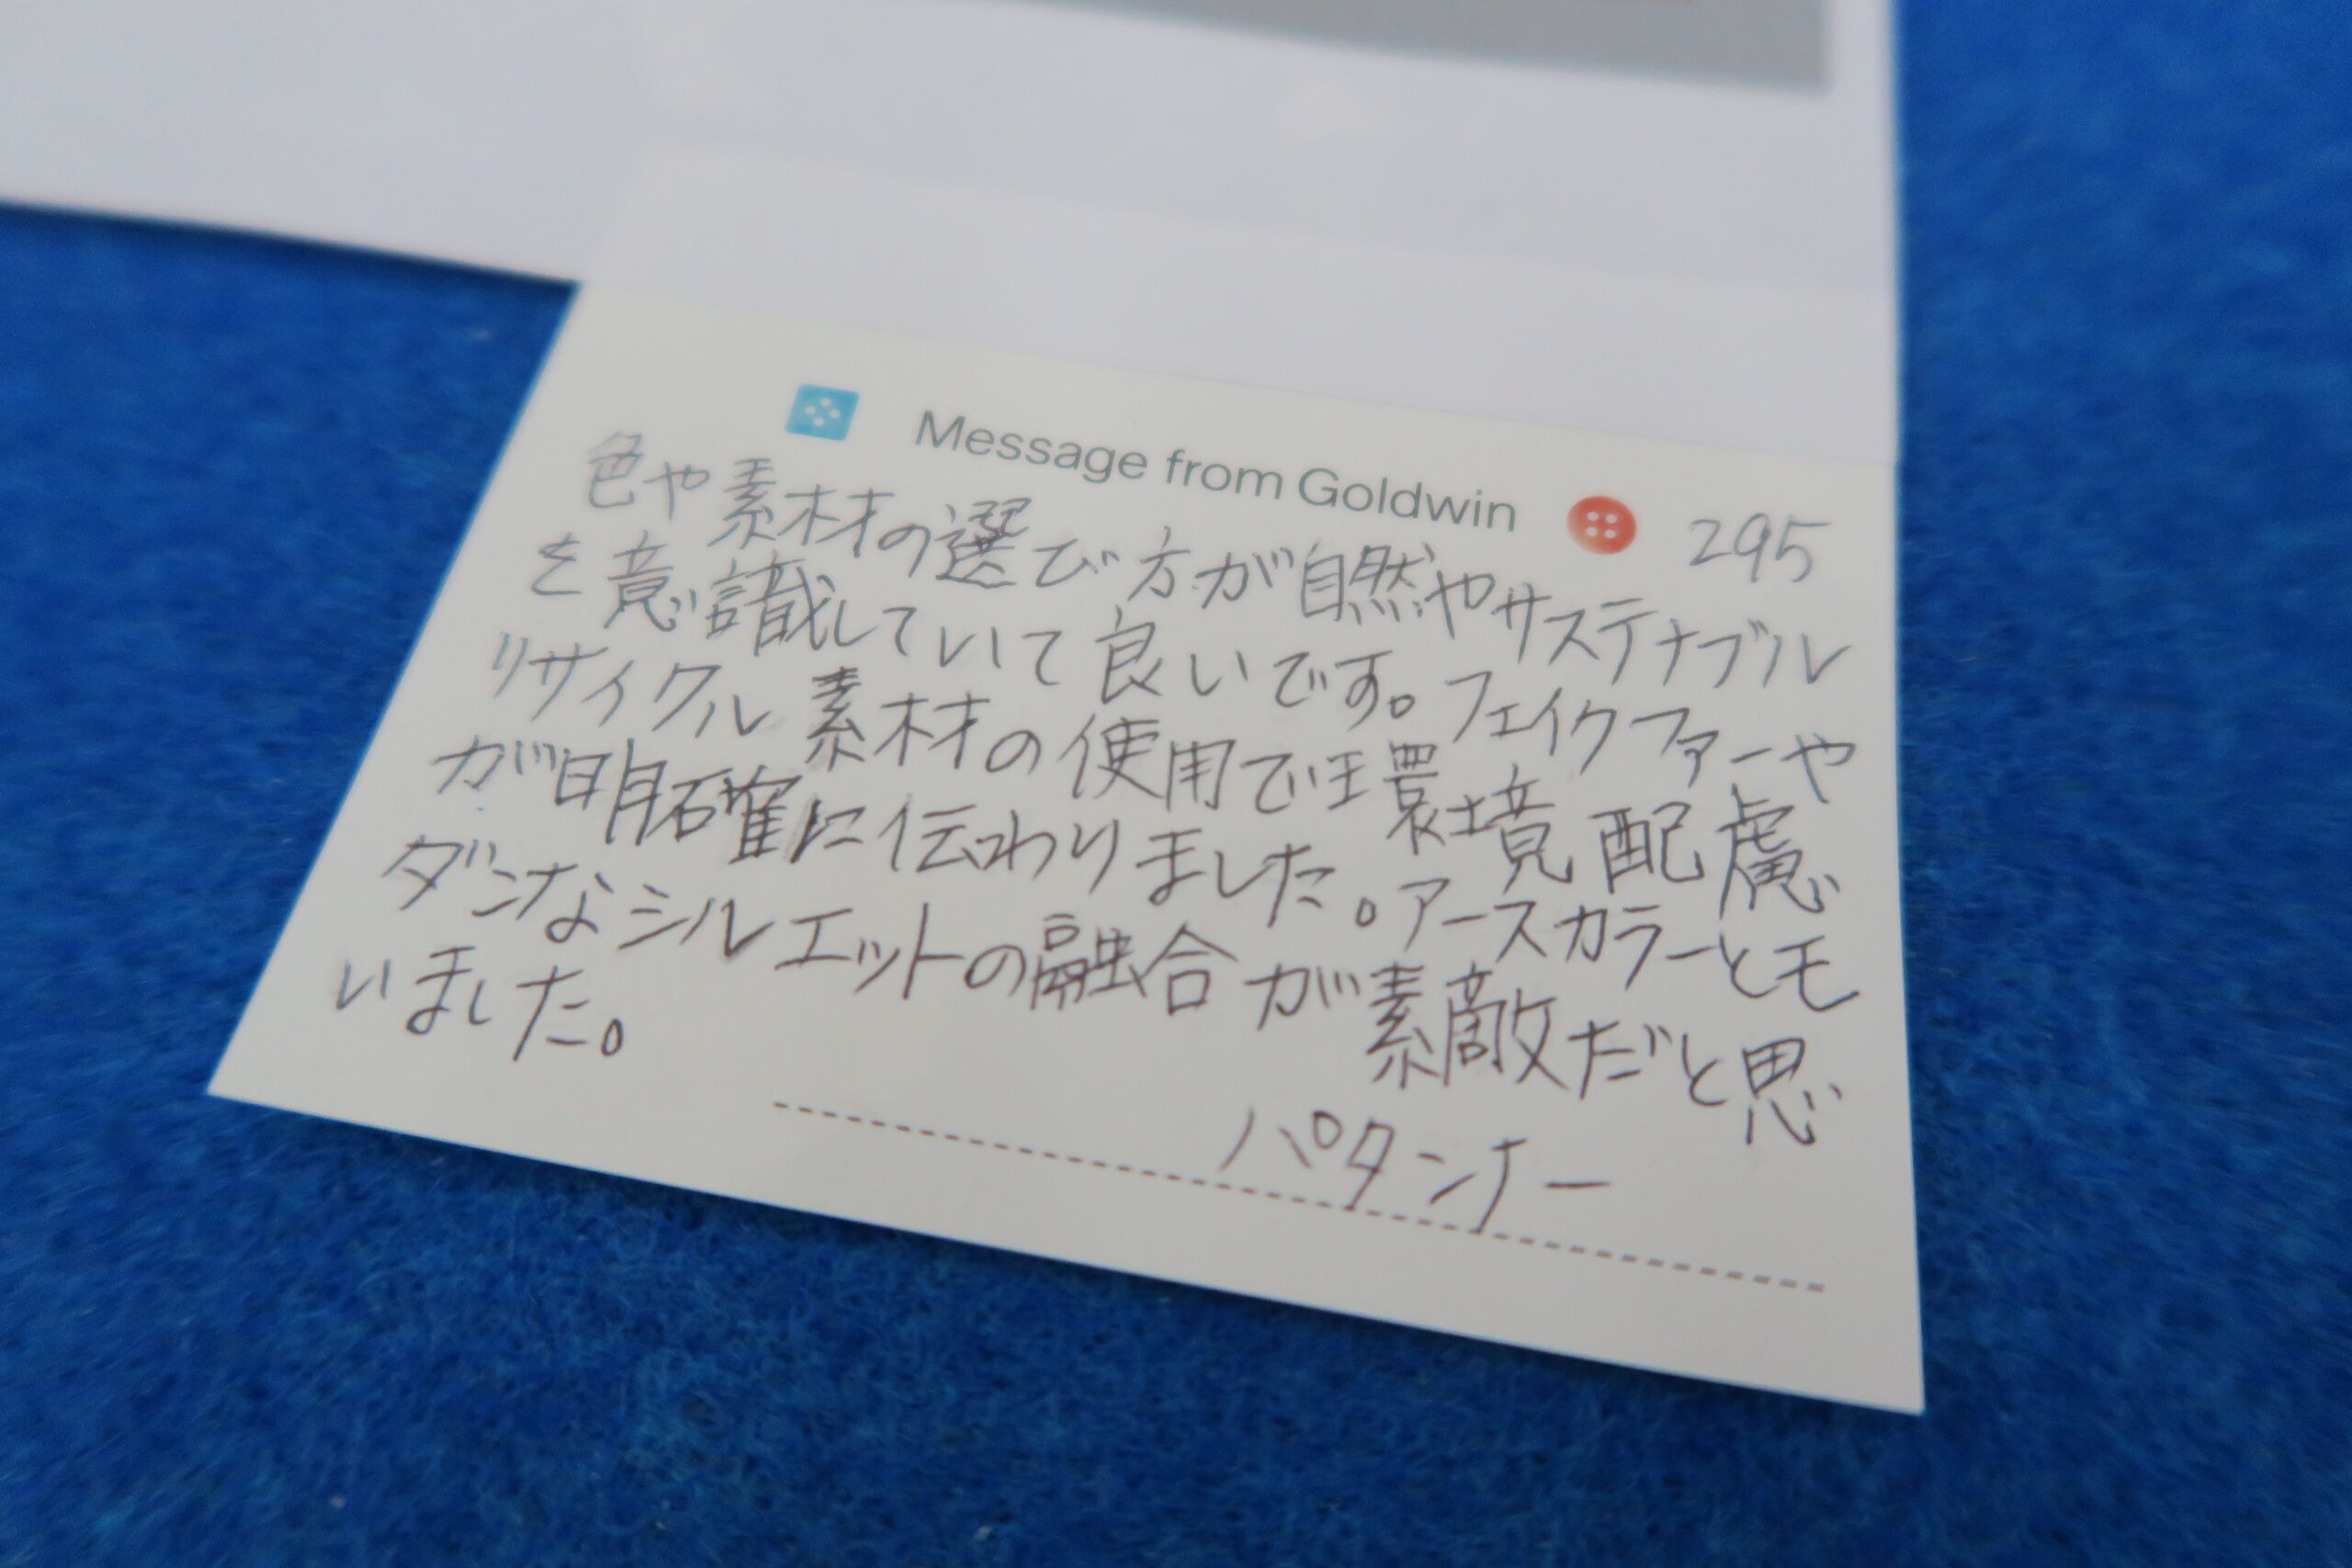 Message from Goldwin
295
色や素材の選び方が自然やサステナブル
を意識していて良いです。フェイクファーや
リサイクル素材の使用で環境配慮
が明確に伝わりました。アースカラーとモ
ダンなシルエットの融合が素敵だと思
いました。
パタンナー